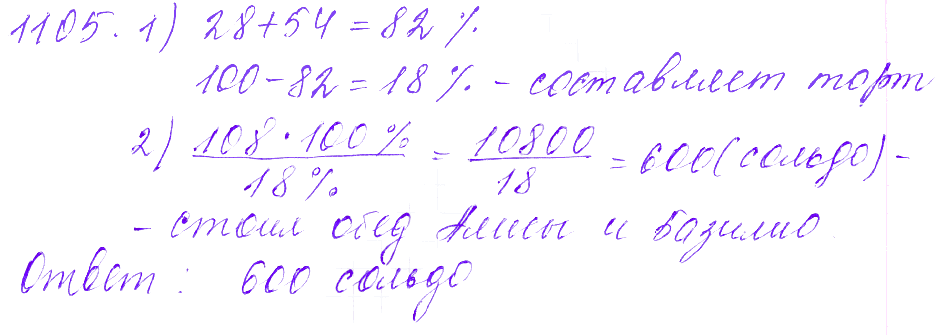 1105. 1) 28+54 = 82 %
100-82 = 18 % - составляет торт
2) 108 · 100 % / 18 % = 10800 / 18 = 600 (сольдо) -
- стоил обед Алисы и Базилио
Ответ: 600 сольдо